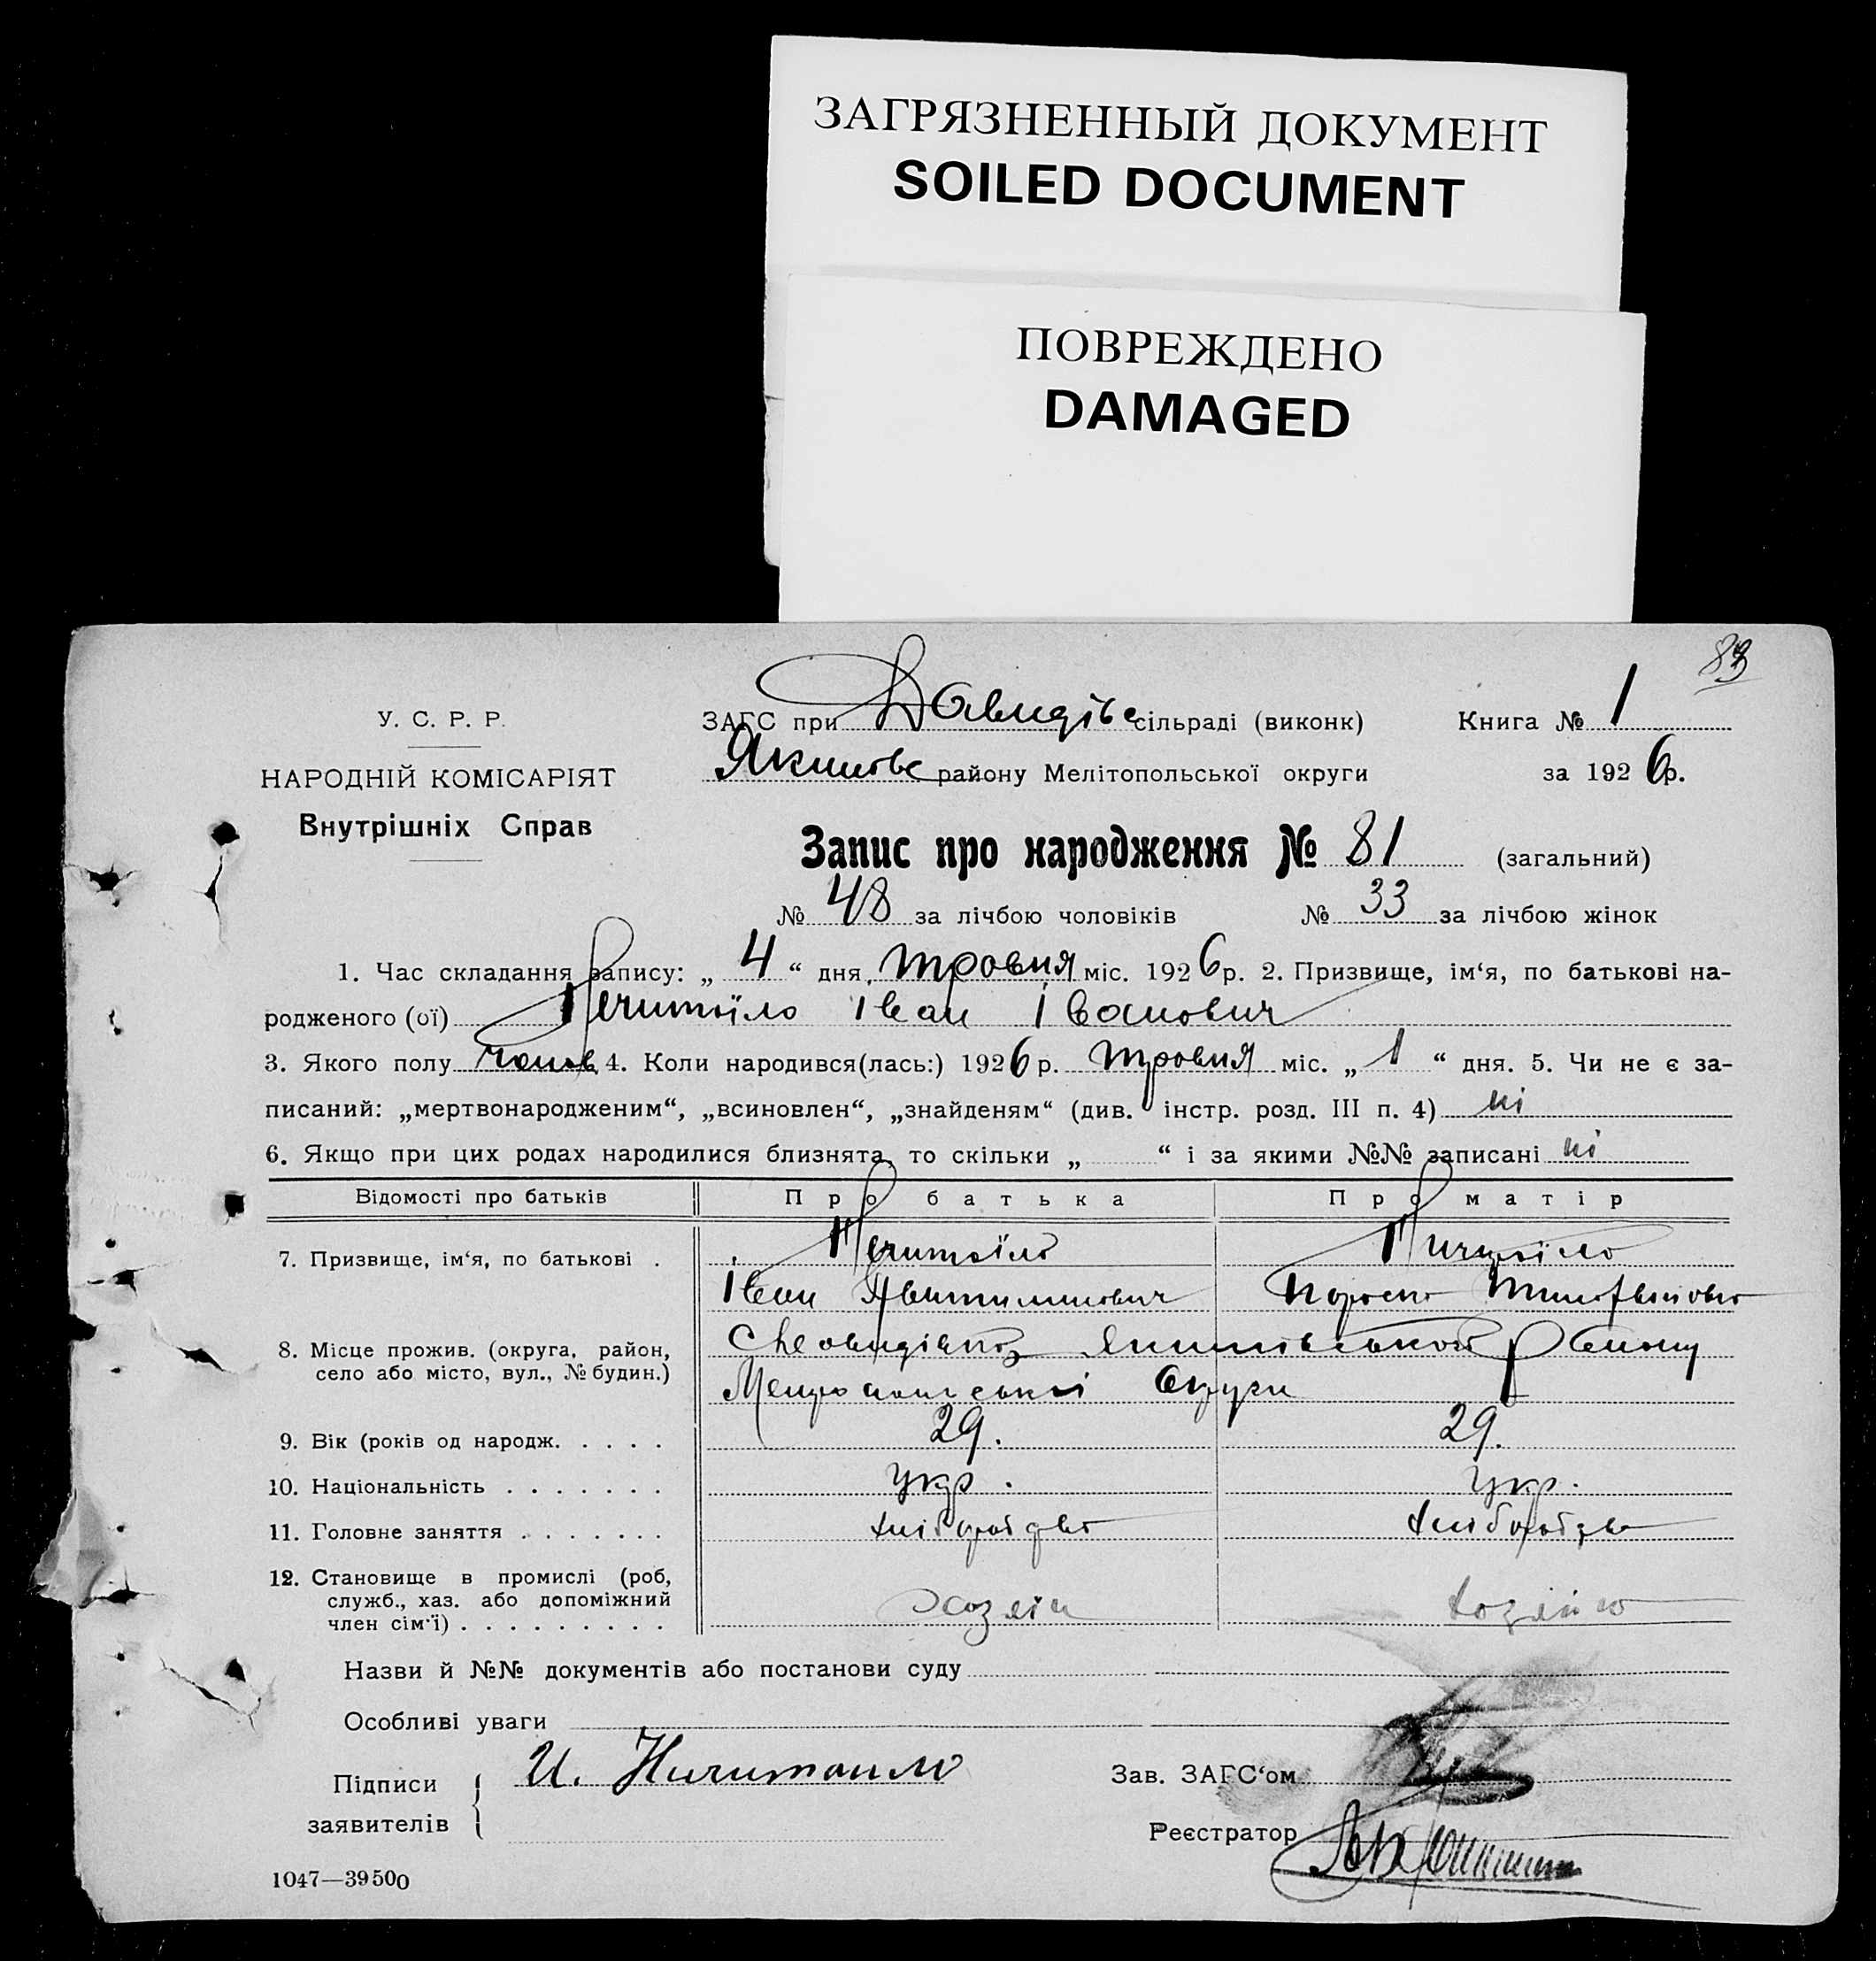 ЗАГРЯЗНЕННЫЙ ДОКУМЕНТ
SOILED DOCUMENT
ПОВРЕЖДЕНО
DAMAGED
У. С. Р. Р.
НАРОДНІЙ КОМІСАРІЯТ
Внутрішніх Справ
ЗАГС при Давидівс сільраді (виконк) Книга № 1
Якимовс району Мелітопольської округи за 1926р.
Запис про народження № 81 (загальний)
№ 48 за лічбою чоловіків № 33 за лічбою жінок
1. Час складання запису: „ 4 “ дня травня міс. 1926р. 2. Призвище, ім‘я, по батькові на-
родженого (ої) Нечитайло Іван Іванович
3. Якого полу чолов 4. Коли народився(лась:) 1926р. травня міс. „ 1 “ дня. 5. Чи не є за-
писаний: „мертвонародженим“, „всиновлен“, „знайденям“ (див. інстр. розд. III п. 4) ні
6. Якщо при цих родах народилися близнята, то скільки „ “ і за якими №№ записані ні
Відомості про батьків Про батька Про матір
7. Призвище, ім‘я, по батькові . Нечитайло Ничитайло
Іван
8. Місце прожив. (округа, район,
село або місто, вул., № будин.)
Округи
9. Вік (років од народж. . . . . 29. 29.
10. Національність . . . . . . . Укр. Укр.
11. Головне заняття . . . . . . . хліборобство хліборобство
12. Становище в промислі (роб,
служб., хаз. або допоміжний
член сім‘ї) . . . . . . . . . Хозяїн хозяйка
Назви й №№ документів або постанови суду
Особливі уваги
Підписи заявителів И. Ничитайло
Зав. ЗАГС‘ом
Реєстратор
1047—39500